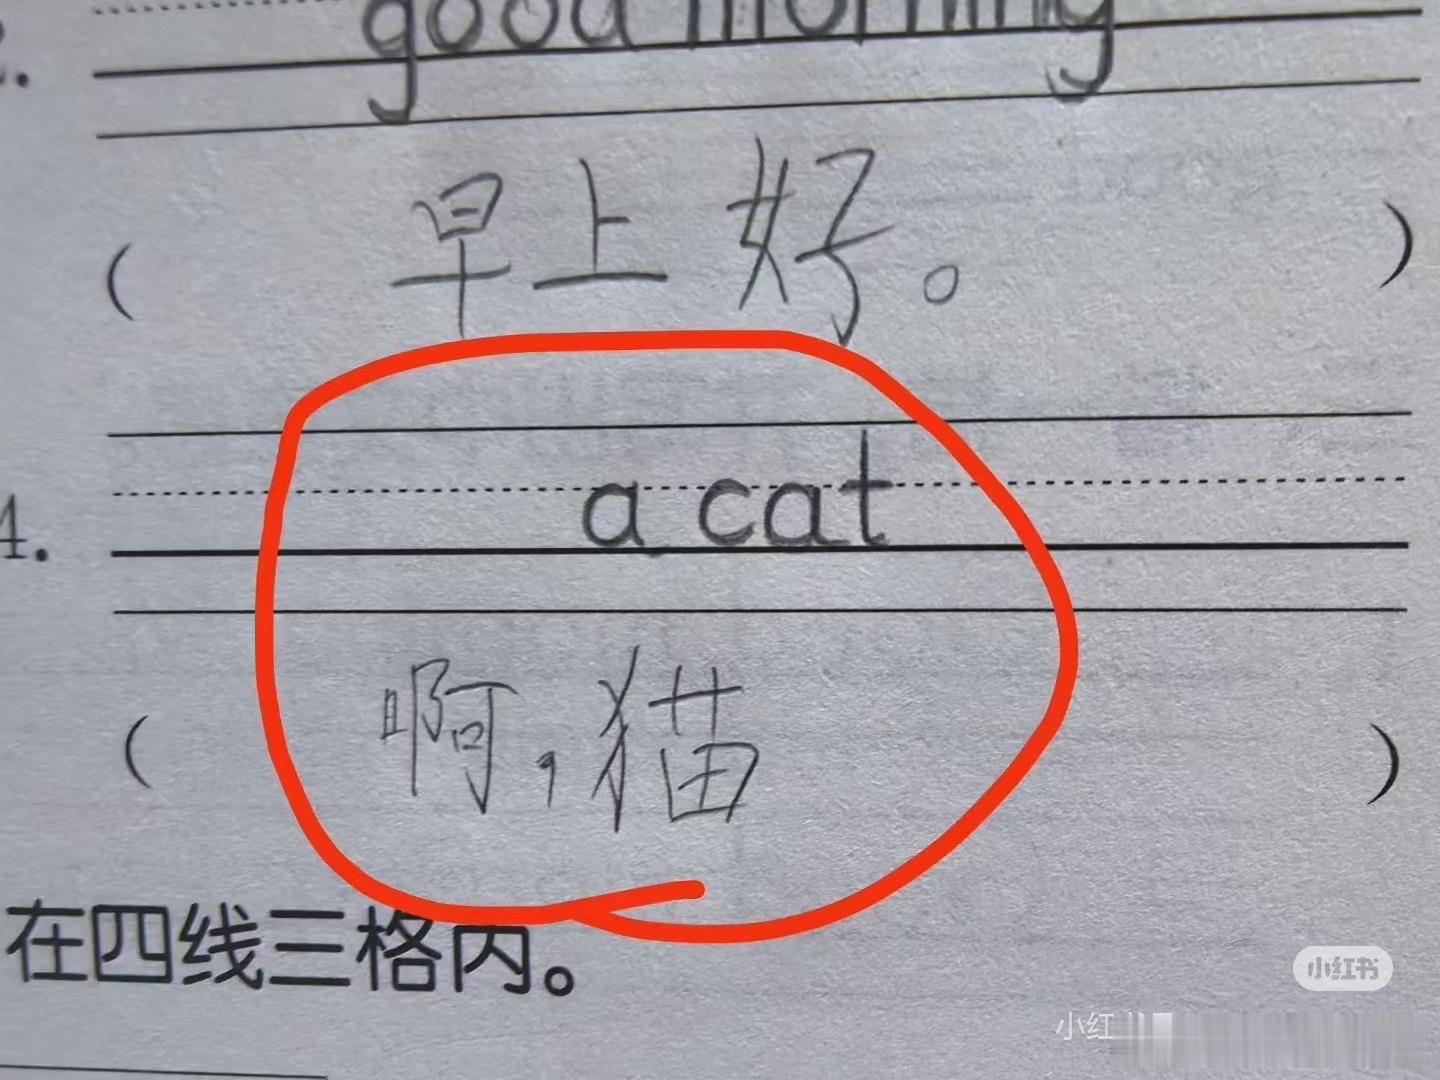 good morning
( 早上好。 )
4. a cat
( 啊,猫 )
在四线三格内。
小红书
小红书